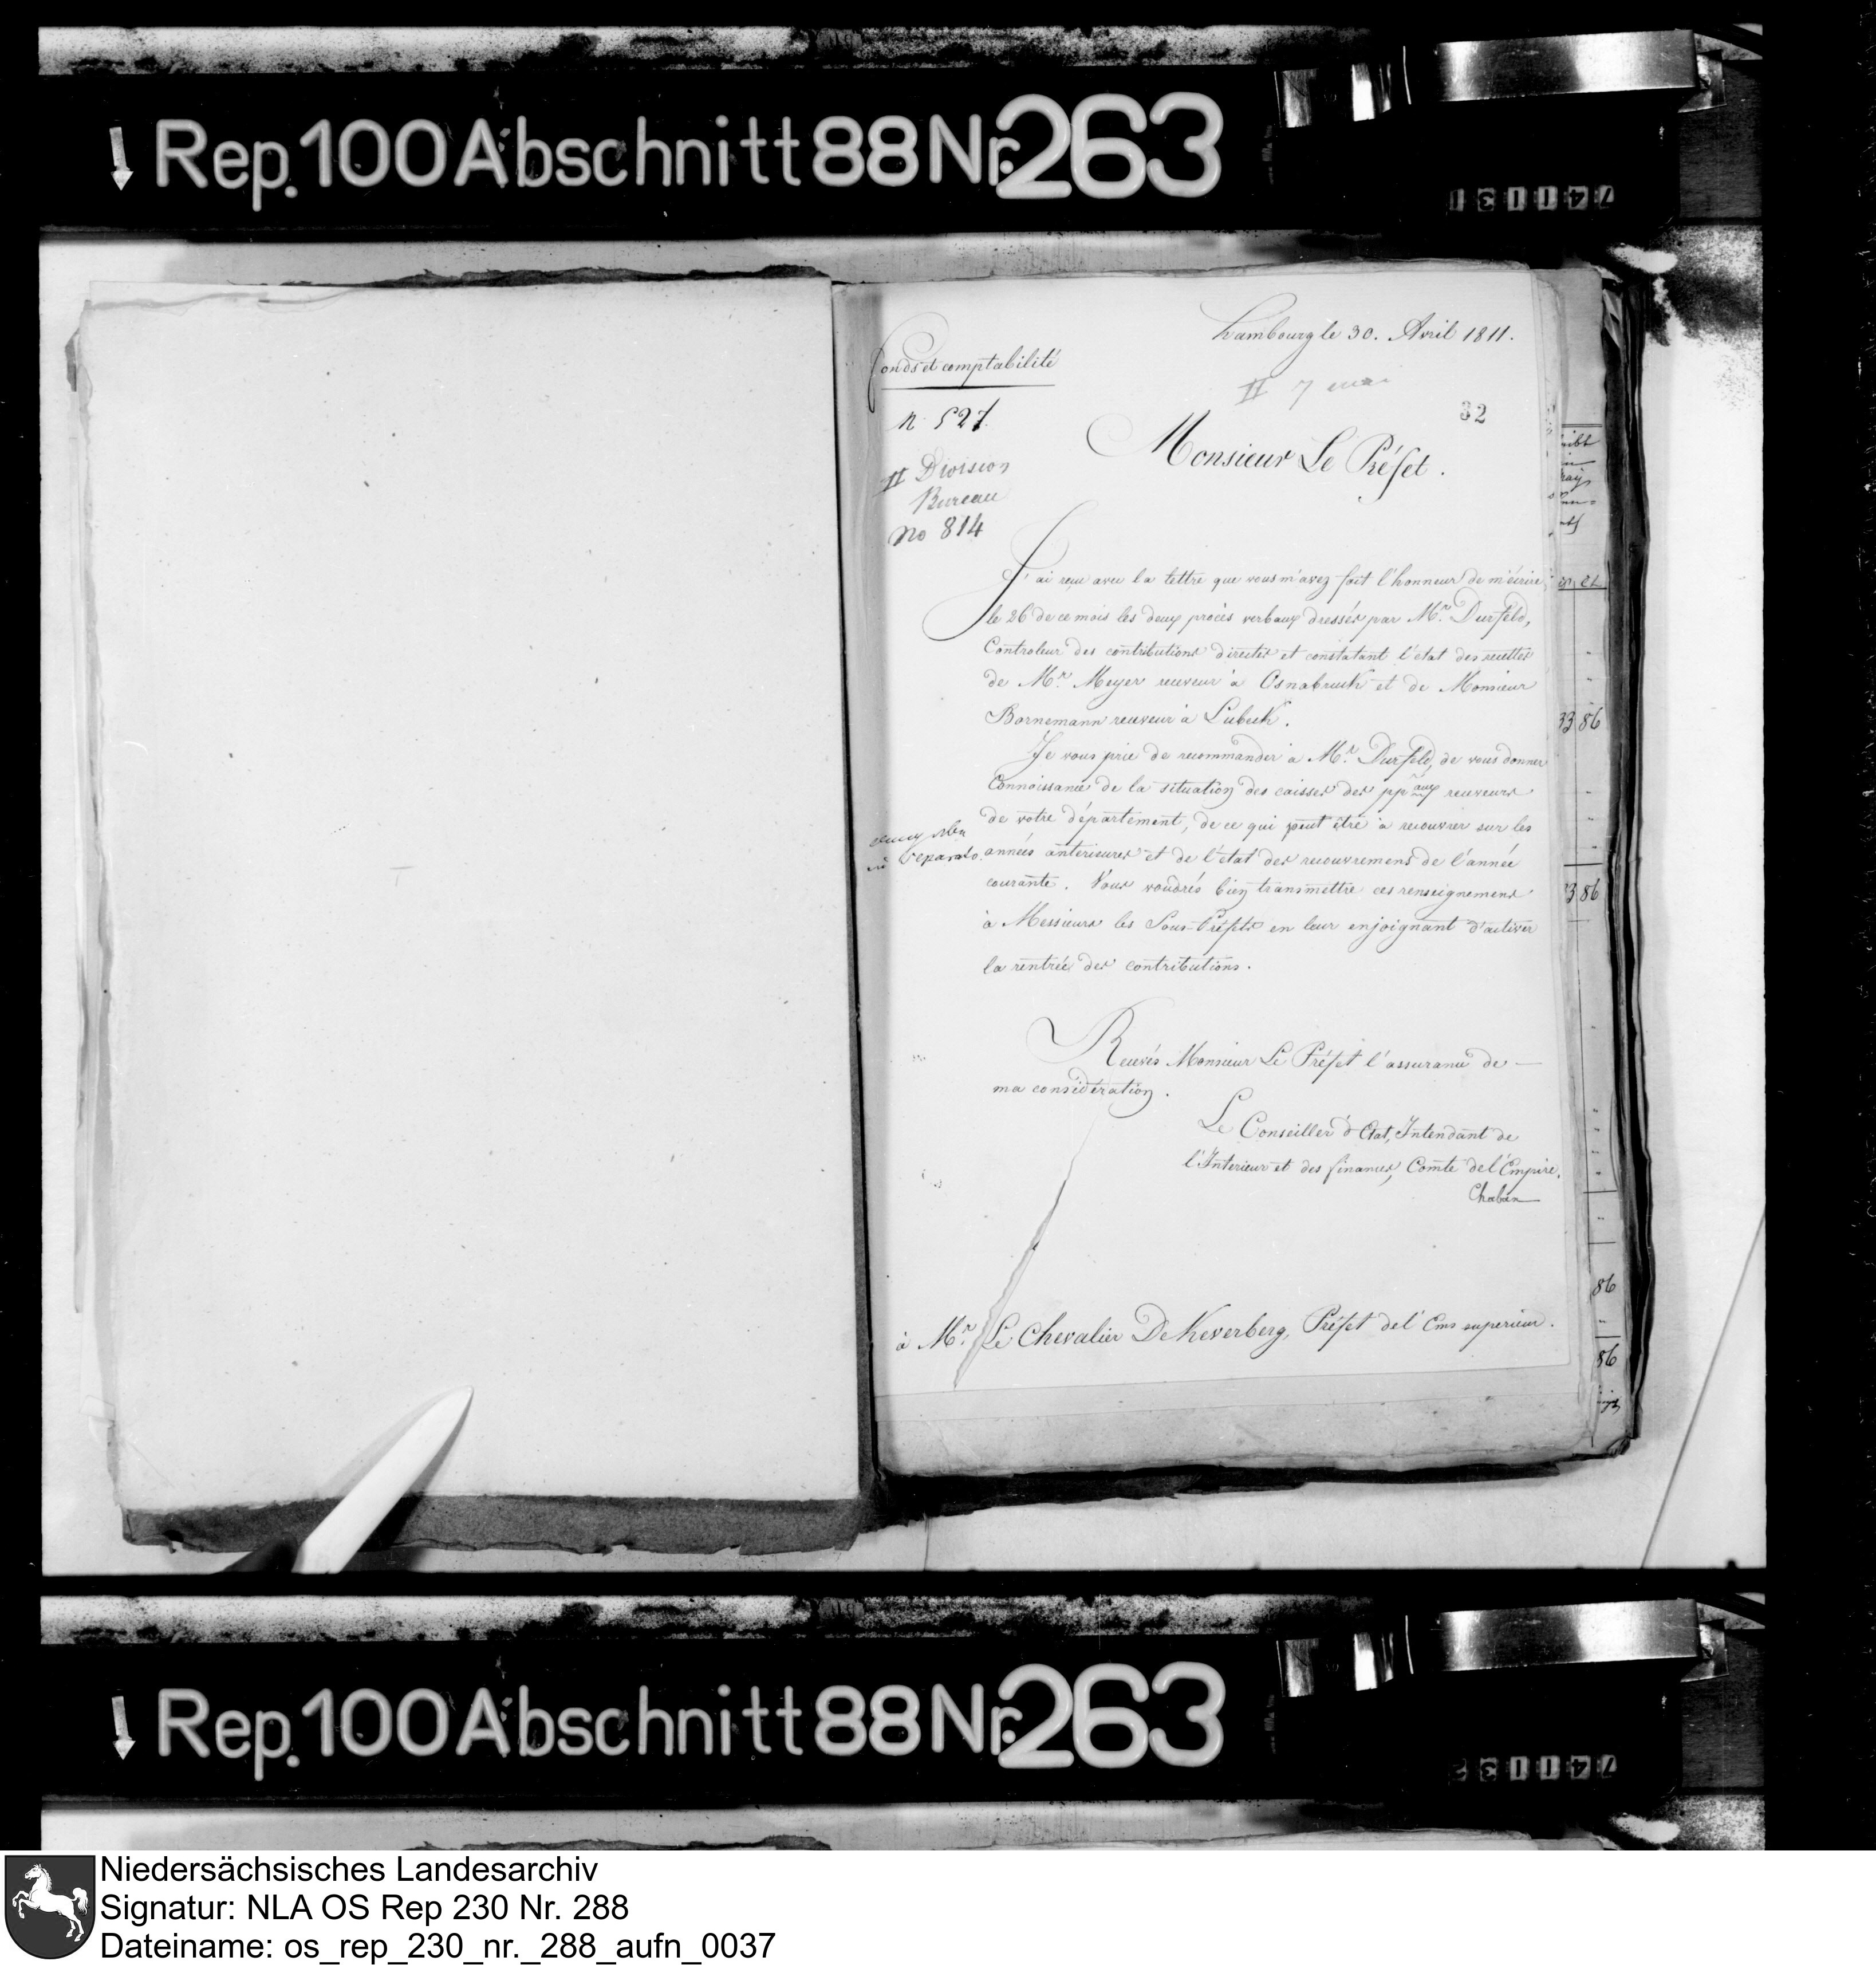 Rep. 100 Abschnitt 88 Nr. 263
741131
hambourg le 30. Avril 1811.
fonds et comptabilité
II 7 mai
n. 527.
32
Monsieur Le Préfet.
II Division
Bureau
No 814
J'ai reçu avec la lettre que vous m'avez fait l'honneur de m'écrire
le 26 de ce mois les deux procès verbaux dressés par Mr. Durfeld,
Controleur des contributions directes et constatant l'état des recettes
de Mr. Meyer receveur à Osnabruck et de Monsieur
Bornemann receveur à Lubeck.
Je vous prie de recommander à Mr. Durfeld, de vous donner
Connoissance de la situation des caisses des ppaux receveurs
de votre département, de ce qui peut être à recouvrer sur les
années anterieures et de l'état des recouvremens de l'année
courante. Vous voudrés bien transmettre ces renseignemens
à Messieurs les Sous-Préfets en leur enjoignant d'activer
la rentrée des contributions.
Recevés Monsieur Le Préfet l'assurance de
ma considération.
Le Conseiller d'Etat, Intendant de
l'Interieur et des finances, Comte de l'Empire.
Chaban
à Mr. Le Chevalier De Keverberg, Préfet de l'Ems superieur.
33 86
33 86
86
86
Rep. 100 Abschnitt 88 Nr. 263
741132
Niedersächsisches Landesarchiv
Signatur: NLA OS Rep 230 Nr. 288
Dateiname: os_rep_230_nr._288_aufn_0037